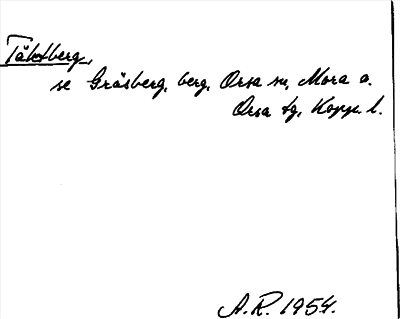 se Gråsberg, berg, Orsa sn, Mora o.
Orsa tg, Kopp. l.
A.R. 1954.